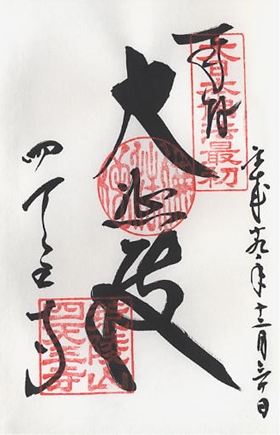 大日本佛法最初
奉拝
平成廿九年十二月
大悲殿
四天王寺
荒陵山
四天王寺